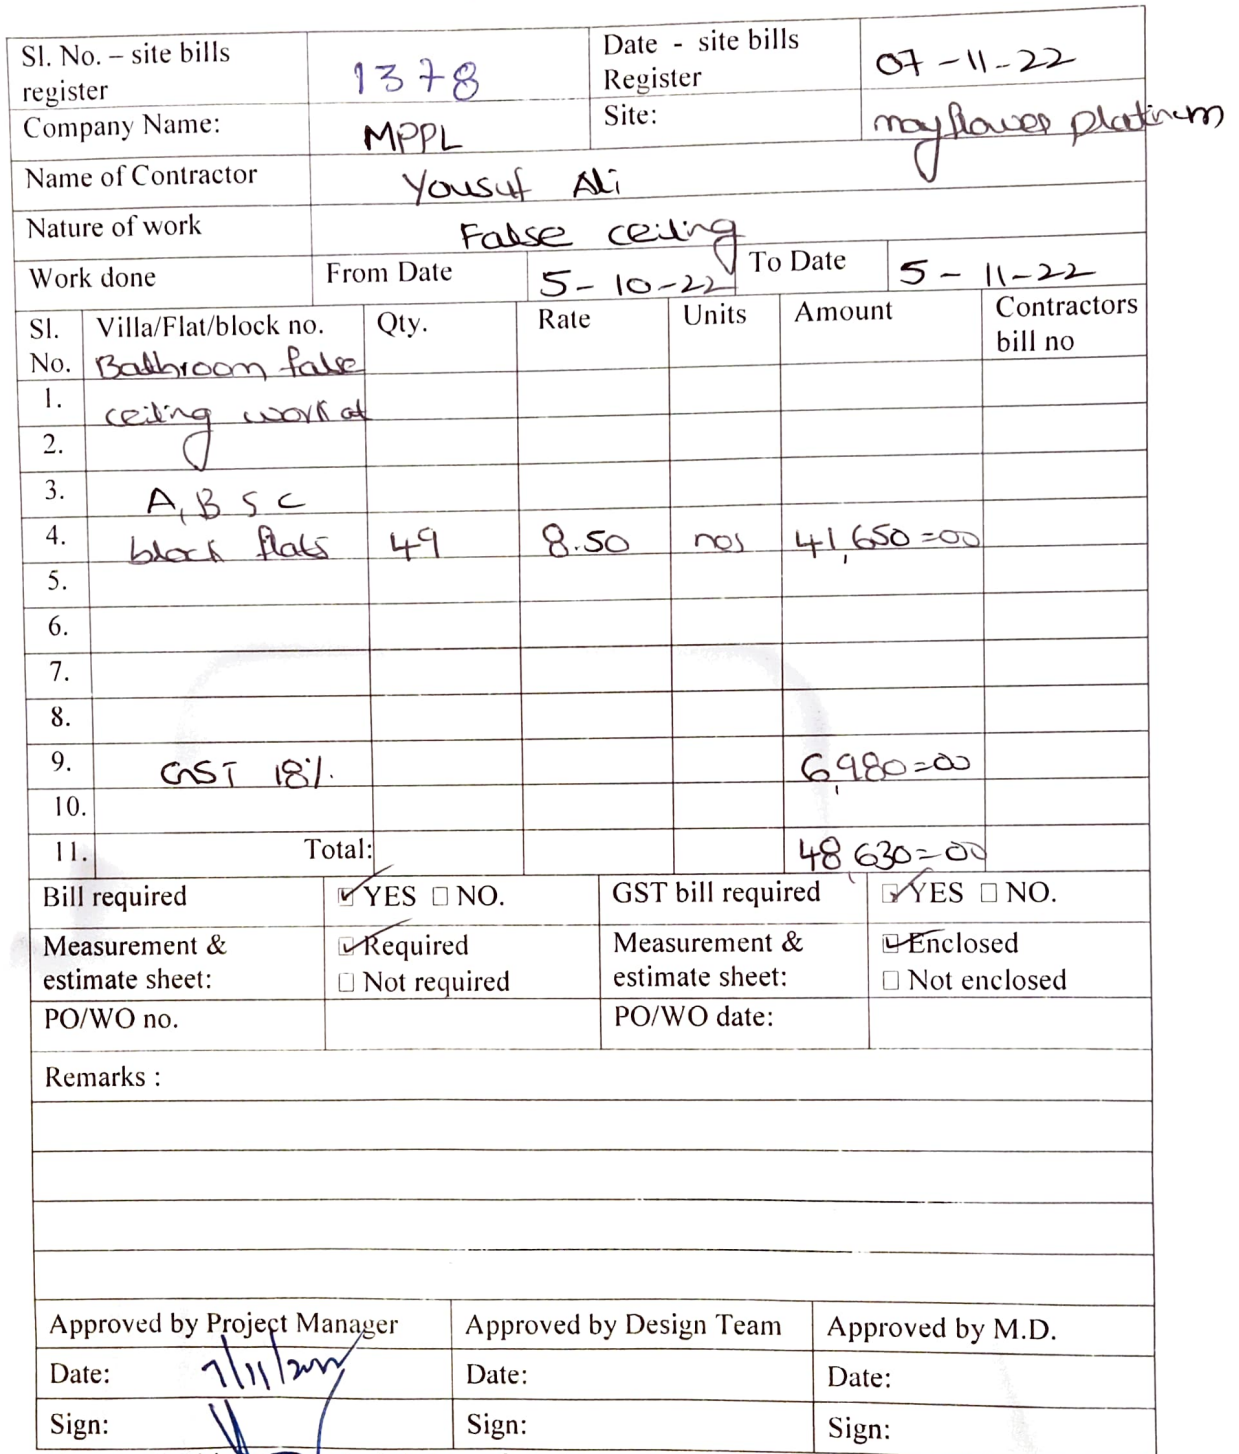 Sl. No. – site bills register 1378 Date - site bills Register 07-11-22
Company Name: MPPL Site: mayflower platinum
Name of Contractor Yousuf Ali
Nature of work False ceiling
Work done From Date 5-10-22 To Date 5-11-22
Sl. No. Villa/Flat/block no. Qty. Rate Units Amount Contractors bill no
Bathroom false
1. ceiling work at
2.
3. A, B S C
4. block flats 49 8.50 nos 41,650=00
5.
6.
7.
8.
9. GST 18%. 6,980=00
10.
11. Total: 48,630=00
Bill required ☑ YES ☐ NO. GST bill required ☑ YES ☐ NO.
Measurement & estimate sheet: ☑ Required ☐ Not required Measurement & estimate sheet: ☑ Enclosed ☐ Not enclosed
PO/WO no. PO/WO date:
Remarks :
Approved by Project Manager Approved by Design Team Approved by M.D.
Date: 7/11/2022 Date: Date:
Sign: Sign: Sign: